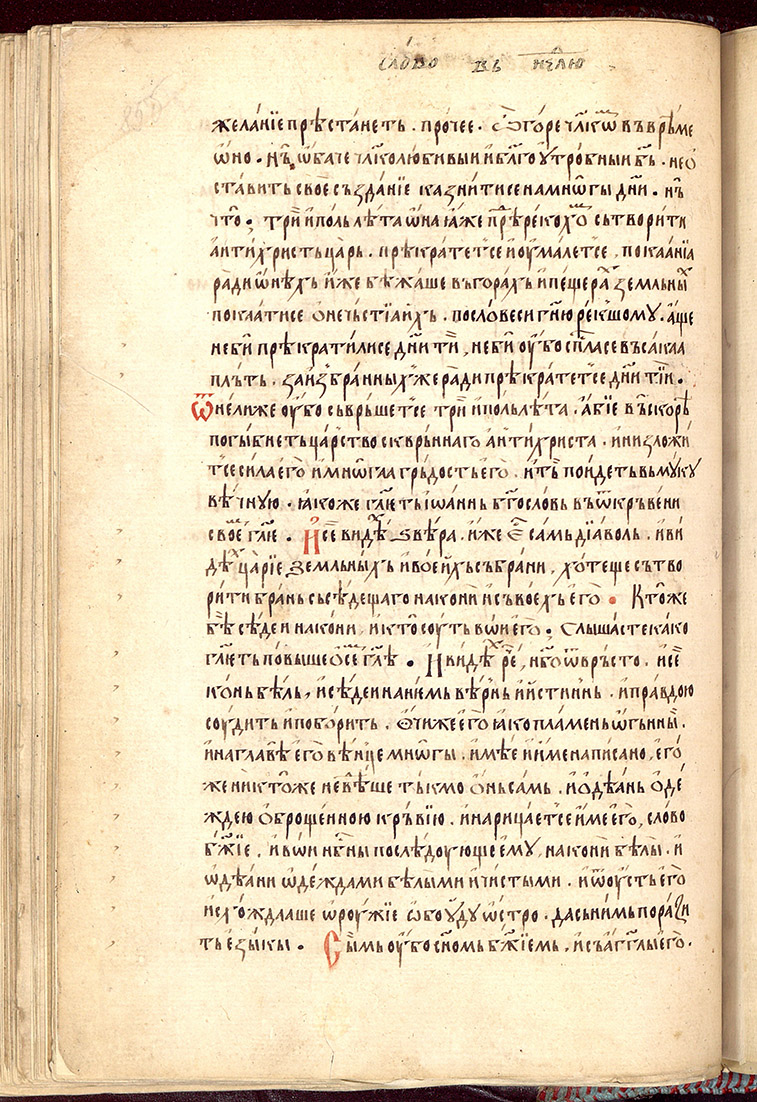 слово въ нє҃лю
желанїе прѣстанеть · прочее · Ѽ горе чл҃кѡⷨ въ врѣме
ѡно · нъ ѡбаче чл҃колюбивыи и бл҃гоꙋтробныи бь҃ · не ѡ
ставить своѐ създанїе казнитисе на мнѡгы дн҃и · нъ
что · трїи и поль лѣта ѡна ꙗже прѣⷣрекохѡⷨ сьтворити
антихристь царь · прѣкратетⷭ҇е и оумалетⷭ҇е , покаанїа
ради ѡнѣхь иже бѣжаше вь горахь и пещераⷯ земльныⷯ
поклатисе ѡ нечьстїаихь · по словеси гн҃ю рекшомꙋ · аще
не би прѣкратилисе дн҃и тїи , не би оубо сп҃сласе въсакаа
плъть · за избранныхже ради прѣкрате тⷭ҇е дн҃и тїи ·
Ѿнелиже оубо сьврьшетⷭ҇е трїи и поль лѣта · абїе въскорѣ
погыбнеть царⷭ҇тво скврьннаго антихриста · и низложи
тⷭ҇е сила его и многаа грьдость его · и тъ поидеть вь мꙋкꙋ
вѣчную · ꙗкоже гл҃еть їѡаннь бг҃ословь въ ѿкрьвени
своеⷨ гл҃ю · И се видѣⷯ ѕвѣра · иже еⷭ҇ самь дїаволь · и ви
дѣⷯ царїе земльныхь и вое ихь събрани , хотеще сьтво
рити брань сь седещаго на кони и съ воехь его · Ктоже
бѣ седеи на кони , и кто соуть вѡи его · Слышасте како
гл҃еть повыше ѡ семь гл҃ѣ · И видѣⷯ реⷱ҇, нб҃о ѿврьсто · и се
конь бѣль , и седеи на немь вѣрнь и истиннь · и правдою
соудить и поборить · Очиже его ꙗко пламень ѡгьнны .
и на главѣ его вѣнце мнѡгы · имѣе и име написано , его
же никтоже не вѣше тькмо онь самь · и ѡдѣань оде
ждею оброщенною крьвїю · и нарицаетⷭ҇е име его , слово
бж҃їе · и вѡи нбⷭ҇ны последоующе емꙋ , на кони бѣлы · и
ѡдѣани ѡдеждами бѣлыми и чистыми · и ѿ оусть его
исхождааше ѡроужїе ѡбоудꙋ ѡстро · да сь нимь порази
ть езыкы · Сымь оубо сн҃омь бж҃їемь , и съ агг҃лы его ·